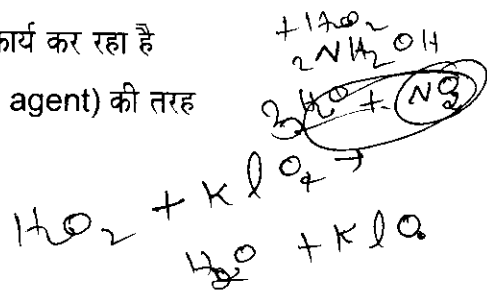 कार्य कर रहा है
agent) की तरह
+ H2O2
2NH2OH
3H2O +
H2O2 + KIO4 →
H2O + KIO3